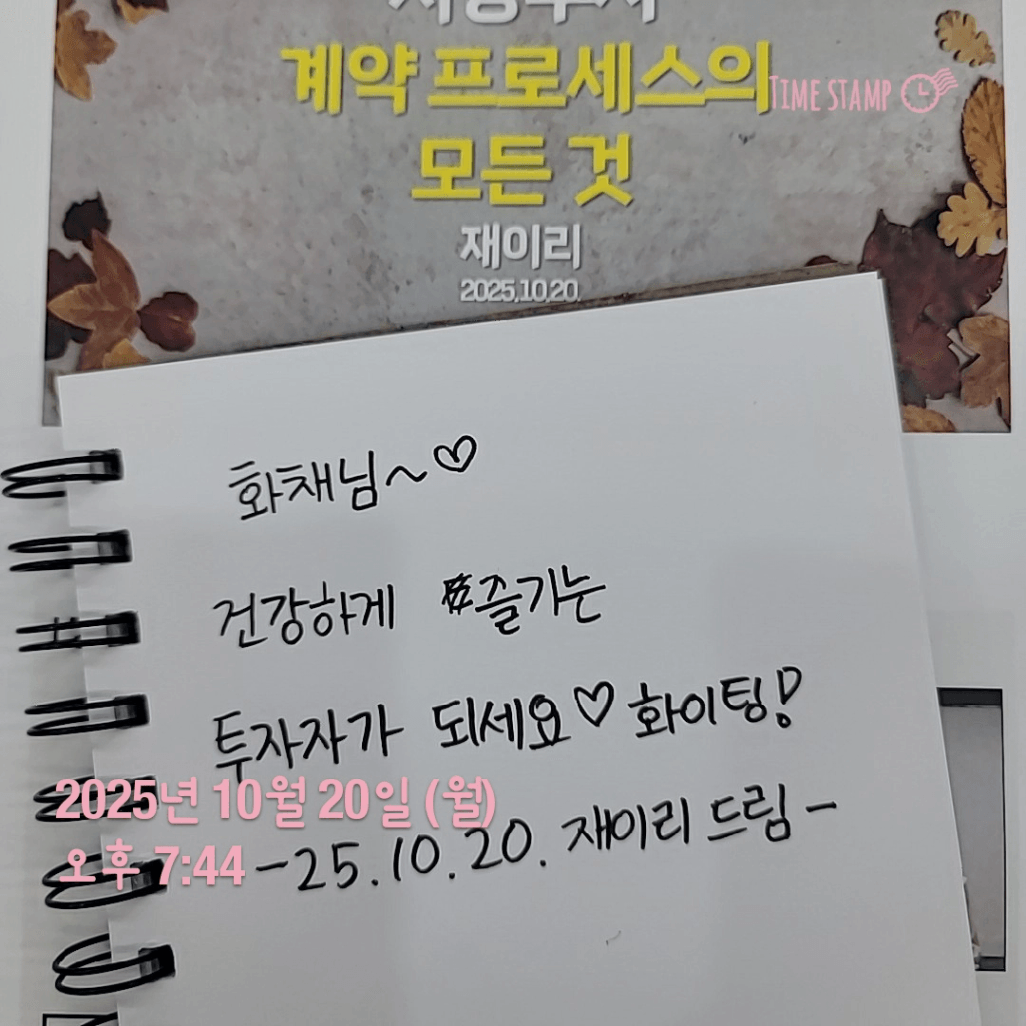 계약 프로세스의
모든 것
재이리
2025.10.20.
TIME STAMP
화채님~♡
건강하게 즐기는
투자자가 되세요♡ 화이팅!
2025년 10월 20일 (월)
오후 7:44
-25.10.20. 재이리 드림-